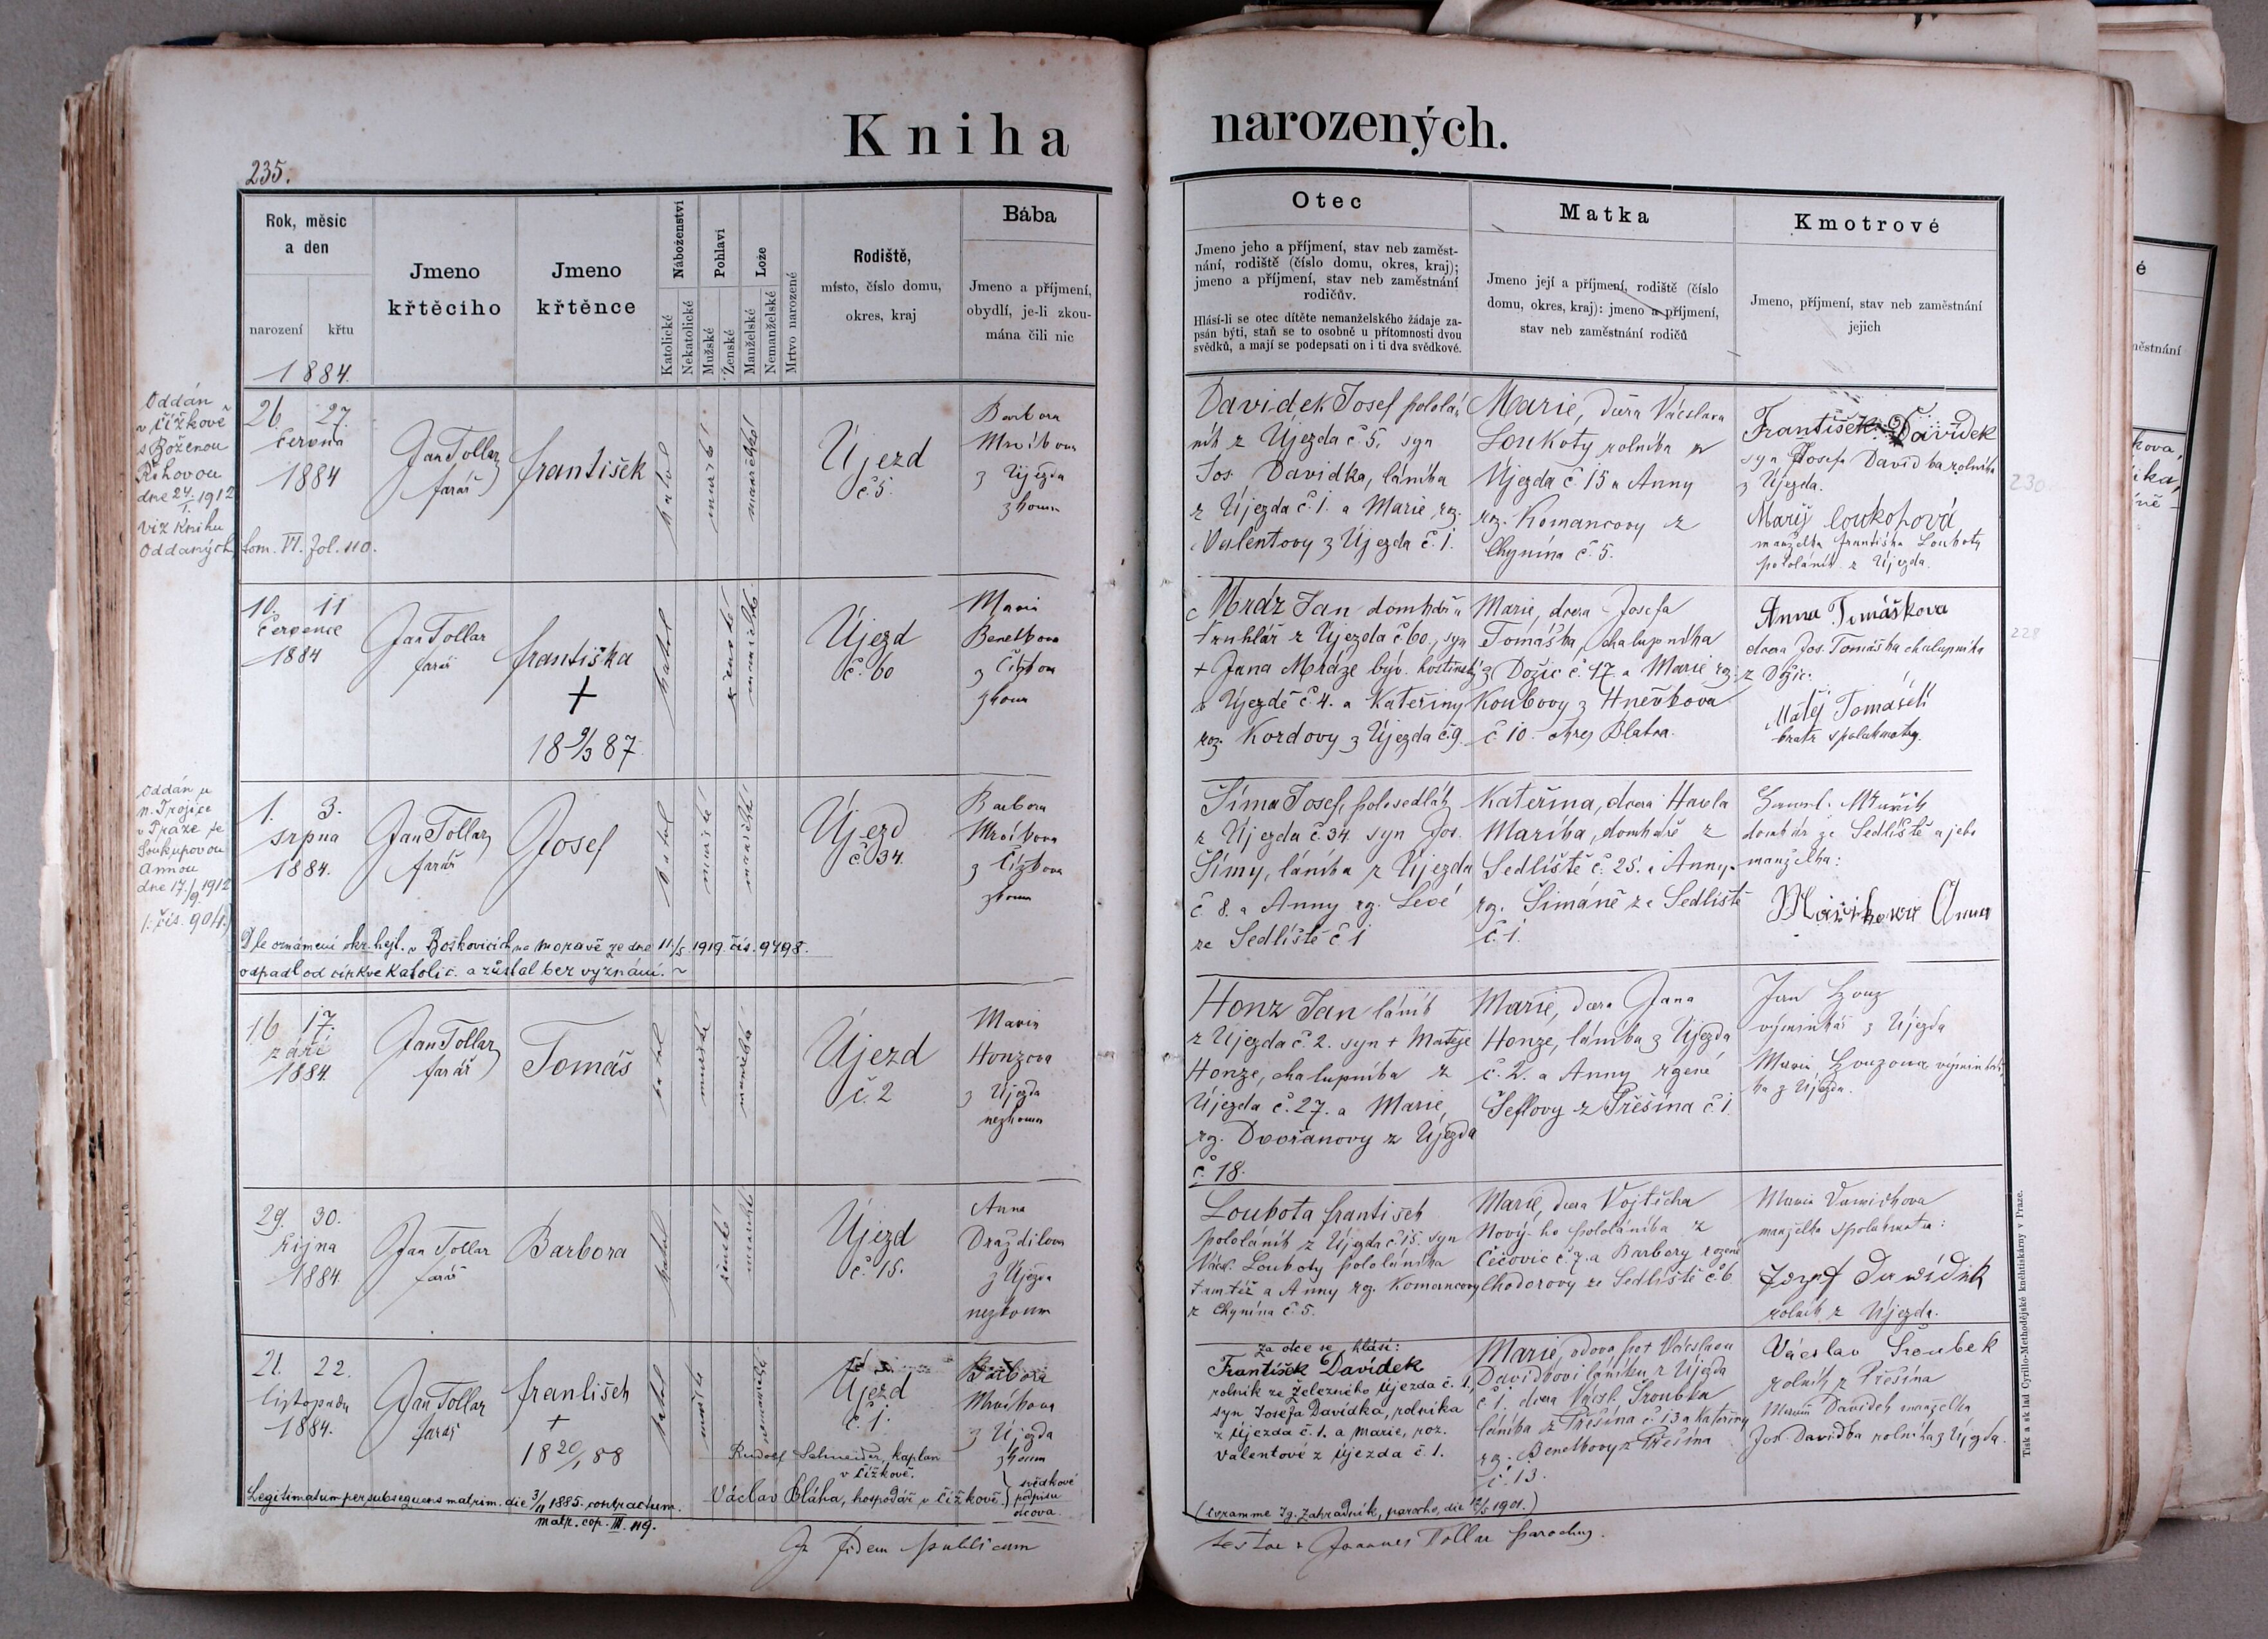 Kniha narozených.
235.
Rok, měsíc
a den
narození
křtu
Jmeno
křtěcího
Jmeno
křtěnce
Náboženství
Katolické
Nekatolické
Pohlaví
Mužské
Ženské
Lože
Manželské
Nemanželské
Mrtvo narozené
Rodiště,
místo, číslo domu,
okres, kraj
Bába
Jmeno a příjmení,
obydlí, je-li zkou-
mána čili nic
Otec
Jmeno jeho a příjmení, stav neb zaměst-
nání, rodiště (číslo domu, okres, kraj);
jmeno a příjmení, stav neb zaměstnání
rodičův.
Hlásí-li se otec dítěte nemanželského žádaje za-
psán býti, staň se to osobně u přítomnosti dvou
svědků, a mají se podepsati on i ti dva svědkové.
Matka
Jmeno její a příjmení, rodiště (číslo
domu, okres, kraj): jmeno a příjmení,
stav neb zaměstnání rodičů
Kmotrové
Jmeno, příjmení, stav neb zaměstnání
jejich
1884.
Oddán
v Čížkově
s Boženou
Říhovou
dne 24/I. 1912
viz Knihu
Oddaných tom. VI. fol. 110.
26. 27.
června
1884
Jan Tollar
farář
František
katol
mužské
manželské
Újezd
č. 5.
Barbora
z Újezda
zkoum
Davidek Josef pololá-
ník z Újezda č. 5. syn
Jos. Davidka, láníka
z Újezda č. 1. a Marie, rz.
Valentovy z Újezda č. 1.
Marie, dcera Václava
Loukoty rolníka z
Újezda č. 15 a Anny
rz. Komancovy z
Chynína č. 5.
František Davídek
syn Josefa Davidka rolníka
z Újezda.
manželka Františka Loukoty
pololáník z Újezda.
230
10. 11
července
1884
Jan Tollar
farář
Františka
+
18 9/3 87
katol
ženské
manželské
Újezd
č. 60
Marie
Benetkova
z Čížkova
zkoum
Mráz Jan domkář a
truhlář z Újezda č. 60., syn
+ Jana Mráze býv. hostinský
v Újezdě č. 4. a Kateřiny
roz. Kordovy z Újezda č. 9.
Marie, dcera Josefa
Tomáška chalupníka
z Dožic č. 17. a Marie rz.
Koubovy z Hněvkova
č. 10 - okres Blatna.
Anna Tomáškova
dcera Jos. Tomáška chalupníka
z Dožic.
Matěj Tomášek
bratr spolukmotry.
228
Oddán u
n. Trojice
v Praze se
Soukupovou
Annou
dne 17./9. 1912
1. čís. 904.
1. 3.
srpna
1884.
Jan Tollar
farář
Josef
katol
mužské
manželské
Újezd
č. 34.
Barbora
z Čížkova
zkoum
Šíma Josef, polosedlák
z Újezda č. 34. syn Jos.
Šímy, láníka z Újezda
č. 8. a Anny rz. Levé
ze Sedliště č. 1
Kateřina, dcera Havla
Maříka, domkáře z
Sedliště č. 25. a Anny
rz. Šimáně ze Sedliště
č. 1.
domkář ze Sedliště a jeho
manželka:
Maříkowá Anna
Dle oznámení okr. hejt. v Boškovicích na moravě ze dne 11./5. 1919. čís. 9498.
odpadl od církve Katolic. a zůstal bez vyznání.
16 17.
září
1884.
Jan Tollar
farář
Tomáš
katol
mužské
manželské
Újezd
č. 2
Marie
Honzova
z Újezda
nezkoum
Honz Jan láník
z Újezda č. 2. syn + Matěje
Honze, chalupníka z
Újezda č. 27. a Marie,
rz. Dvořanovy z Újezda
č. 18.
Marie, dcera Jana
Honze, láníka z Újezda
č. 2. a Anny rzené
Šeflovy z Přešína č. 1.
Jan Honz
výminkář z Újezda
Marie Honzova výminkář-
ka z Újezda.
29. 30.
Října
1884.
Jan Tollar
farář
Barbora
katol
ženské
manželské
Újezd
č. 15.
Anna
Draždilova
z Újezda
nezkoum
Loukota František
pololáník z Újezda č. 15. syn
Václ. Loukoty pololáníka
tamtéž a Anny rz. Komancovy
z Chynína č. 5.
Marie, dcera Vojtěcha
Nový-ho pololáníka z
Čečovic č. 7. a Barbory rozené
Chodorovy ze Sedliště č. 6
Marie Davidkova
manželka spolukmotra:
Jozef Dawídek
rolník z Újezda.
21. 22.
listopadu
1884.
Jan Tollar
farář
František
+
18 20/1 88
katol
mužské
nemanželské
Újezd
č. 1.
Barbora
z Újezda
zkoum
Za otce se hlásí:
František Davídek
rolník ze Železného Újezda č. 1,
syn Josefa Davídka, rolníka
z Újezda č. 1. a Marie, roz.
Valentové z Újezda č. 1.
Marie, vdova po + Václavu
Davidkovi láníku z Újezda
č. 1. dcera Václ. Šroubka
láníka z Přešína č. 13 a Kateřiny
rz. Benetkovy z Přešína
č. 13.
Václav Šroubek
rolník z Přešína
Marie Davidek manželka
Jos. Davidka rolníka z Újezda.
Rudolf Schneider, kaplan
v Čížkově.
Václav Bláha, hospodář v Čížkově.
svědkové
podpisu
otcova.
Legitimatum per subsequens matrim. die 3/11 1885. contractum.
matr. cop. III. 119.
(coram me Ig. Zahradník, parocho, die 12/5 1901.)
In fidem publicam
testor Joannes Tollar parochus.
Tisk a sklad Cyrillo-Methodějské knihtiskárny v Praze.